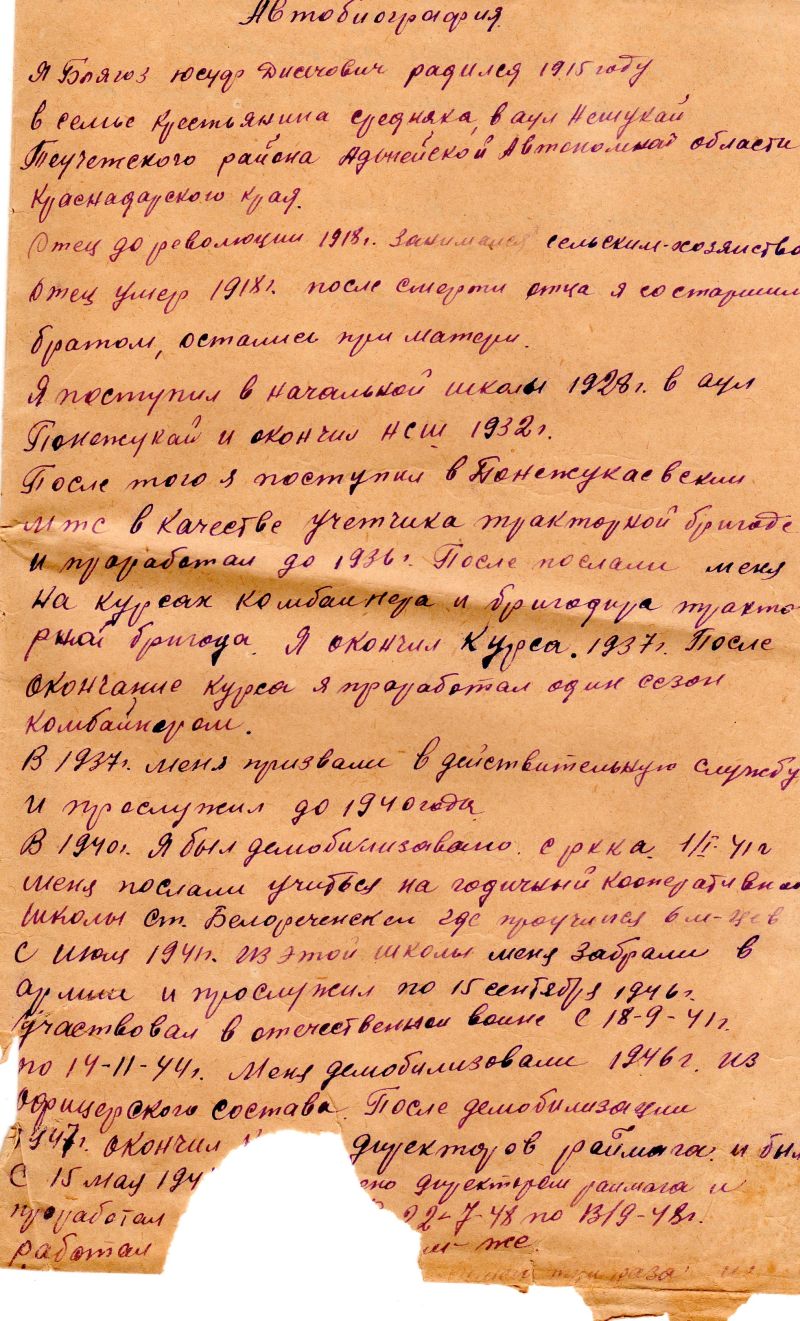 Автобиография
Я Блягоз Юсуф Дисичович радился 1915 году
в семье крестьянина средняка, в аул Нешукай
Теучежского района Адыгейской Автономной области
Краснадарского края.
Отец до революции 1918г. Занимался сельским-хозяйство
Отец умер 1918г. после смерти отца я со старшим
братом, остались при матери.
Я поступил в начальной школы 1928г. в аул
Понежукай и окончил НСШ 1932г.
После того я поступил в Понежукаевским
мтс в качестве учетчика тракторной бригаде
и проработал до 1936г. После послали меня
на курсах комбайнера и бригадира тракто-
рной бригада. Я окончил Курса. 1937г. После
окончание курса я проработал один сезон
комбайнером.
В 1937г. меня призвали в действительную службу
и прослужил до 1940 года
В 1940г. Я был демобилизовано с ркка. 1/I-41г
меня послали учиться на годичный кооперативн
школы ст. Белореченской где проучился 6 м-цев
С июля 1941г. из этой школы меня забрали в
армии и прослужил по 15 сентября 1946г.
Участвовал в отечественной войне с 18-9-41г.
по 14-11-44г. Меня демобилизовали 1946г. из
офицерского состава. После демобилизации
1947г. окончил директоров раймага. и был
С 15 мая 194 ено директором раймага и
проработал 22-7-48 по 13/9-48г.
работал м- же.
три раза